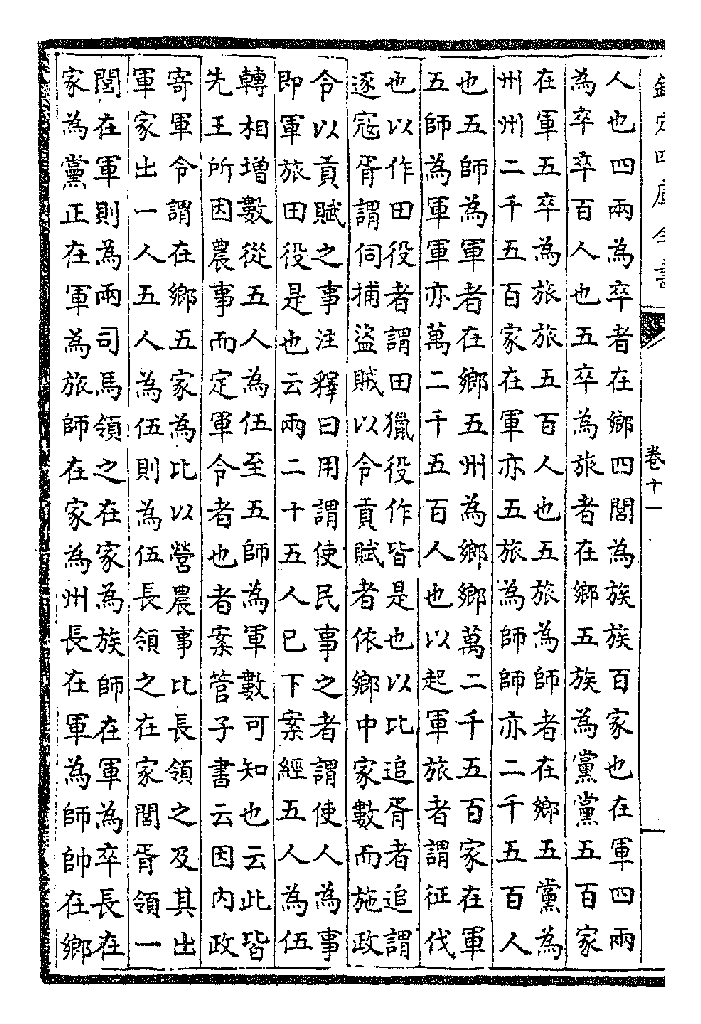 欽定四庫全書
卷十一
人也四兩為卒者在鄉四閭為族族百家也在軍四兩
為卒卒百人也五卒為旅者在鄉五族為黨黨五百家
在軍五卒為旅旅五百人也五旅為師者在鄉五黨為
州州二千五百家在軍亦五旅為師師亦二千五百人
也五師為軍者在鄉五州為鄉鄉萬二千五百家在軍
五師為軍軍亦萬二千五百人也以起軍旅者謂征伐
也以作田役者謂田獵役作皆是也以比追胥者追謂
逐寇胥謂伺捕盜賊以令貢賦者依鄉中家數而施政
令以貢賦之事注釋曰用謂使民事之者謂使人為事
即軍旅田役是也云兩二十五人已下案經五人為伍
轉相增數從五人為伍至五師為軍數可知也云此皆
先王所因農事而定軍令者也者案管子書云因內政
寄軍令謂在鄉五家為比以營農事比長領之及其出
軍家出一人五人為伍則為伍長領之在家閭胥領一
閭在軍則為兩司馬領之在家為族師在軍為卒長在
家為黨正在軍為旅師在家為州長在軍為師帥在鄉